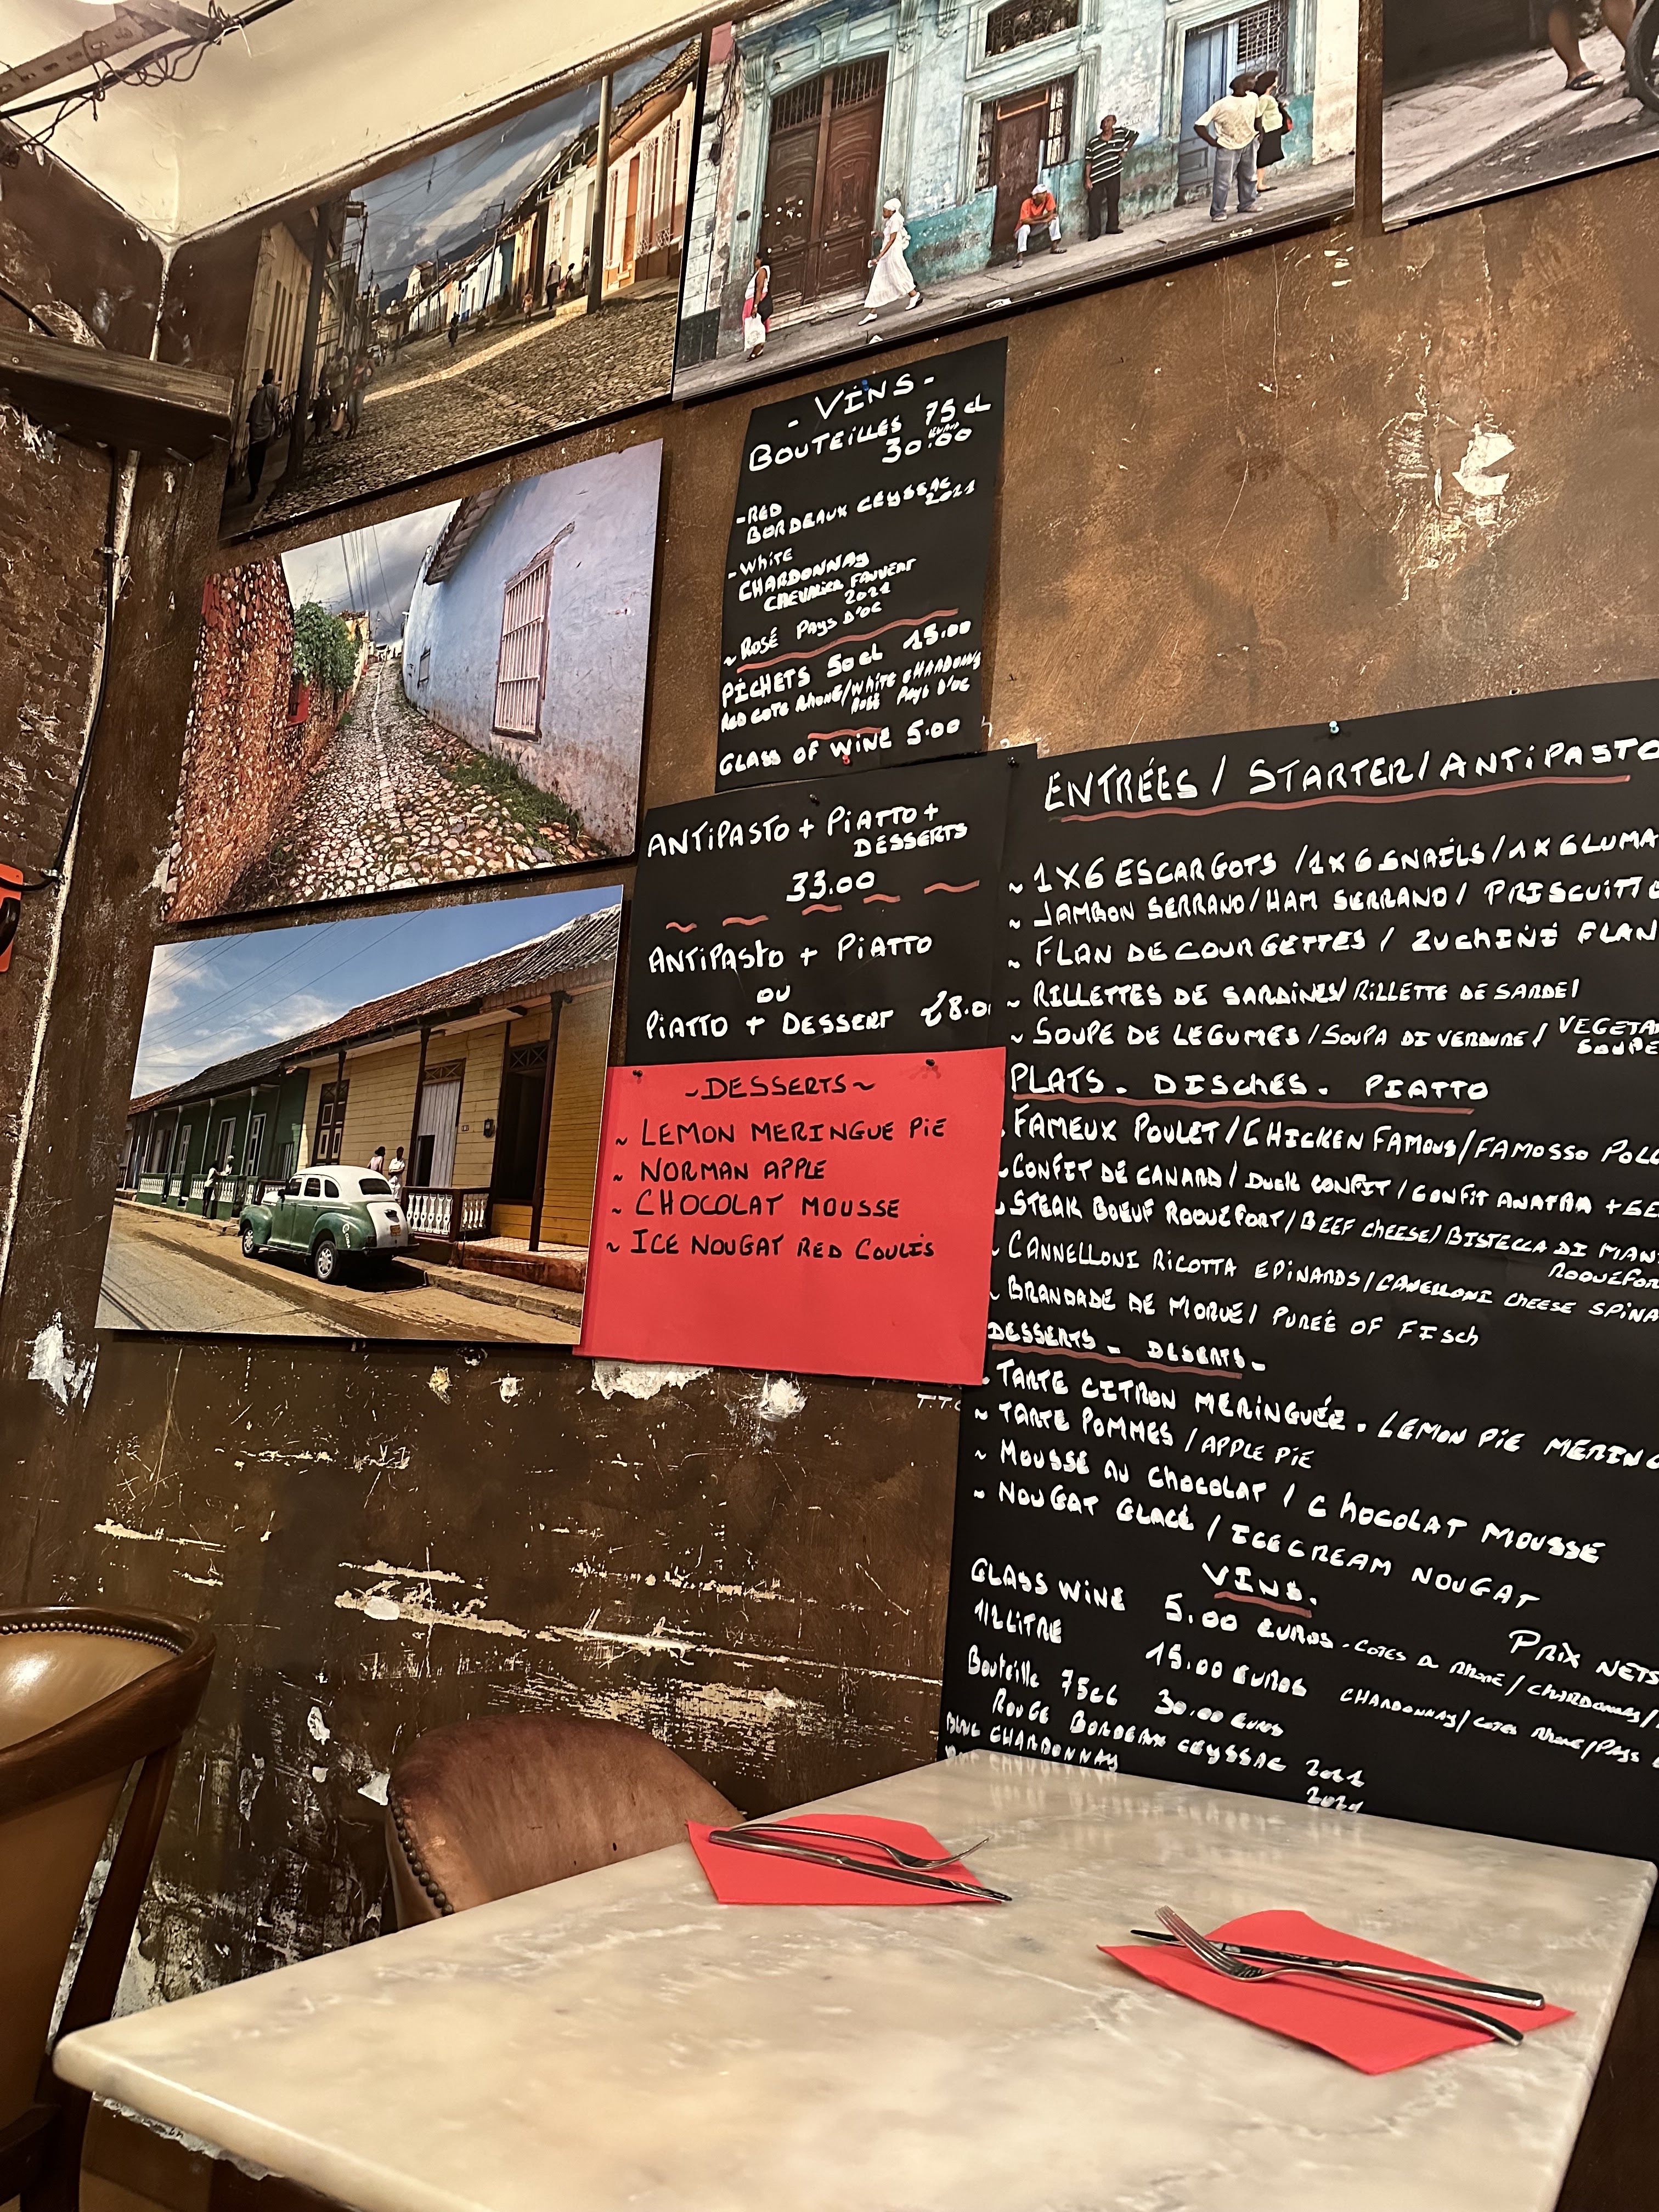 - VINS -
BOUTEILLES 75 cl
30.00
- RED
BORDEAUX CEYSSAC
2021
- WHITE
CHARDONNAY
CHEVALIER FAUVERT
2021
~ ROSÉ PAYS D'OC
PICHETS 50cl 15.00
RED COTE RHONE/WHITE CHARDONNAY
ROSÉ PAYS D'OC
GLASS OF WINE 5.00
ANTIPASTO + PIATTO +
DESSERTS
33.00
ANTIPASTO + PIATTO
OU
PIATTO + DESSERT 28.0
~DESSERTS~
~ LEMON MERINGUE PIE
~ NORMAN APPLE
~ CHOCOLAT MOUSSE
~ ICE NOUGAT RED COULIS
ENTRÉES / STARTER / ANTIPASTO
~ 1X6 ESCARGOTS / 1X6 SNAILS / 1X6 LUMA
~ JAMBON SERRANO / HAM SERRANO / PRISCUITTO
~ FLAN DE COURGETTES / ZUCHINI FLAN
~ RILLETTES DE SARDINES / RILLETTE DE SARDEI
~ SOUPE DE LEGUMES / SOUPA DI VERDURE / VEGETA
SOUPE
PLATS - DISCHES - PIATTO
FAMEUX POULET / CHICKEN FAMOUS / FAMOSSO POLL
CONFIT DE CANARD / DUCK CONFIT / CONFIT ANATRA + GE
STEAK BOEUF ROQUEFORT / BEEF CHEESE / BISTECCA DI MAN
ROQUEFOR
~ CANNELLONI RICOTTA EPINARDS / CANELLONI CHEESE SPINA
~ BRANDADE DE MORUE / PURÉE OF FISCH
DESSERTS - DESERTS -
TARTE CITRON MERINGUÉE - LEMON PIE MERING
~ TARTE POMMES / APPLE PIE
~ MOUSSE AU CHOCOLAT / CHOCOLAT MOUSSE
~ NOUGAT GLACÉ / ICECREAM NOUGAT
VINS.
PRIX NETS
GLASS WINE 5.00 EUROS - COTES D RHONE / CHARDONNAY /
1/2 LITRE 15.00 EUROS CHARDONNAY / COTES RHONE / PAYS
Bouteille 75cl 30.00 EUROS
ROUGE BORDEAUX CEYSSAC 2021
BLANC CHARDONNAY 2021